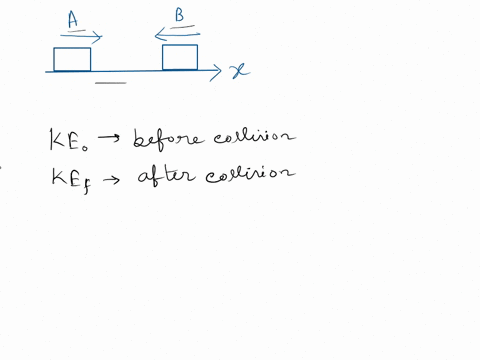 A B
x
KE₀ → before collision
KE_f → after collision